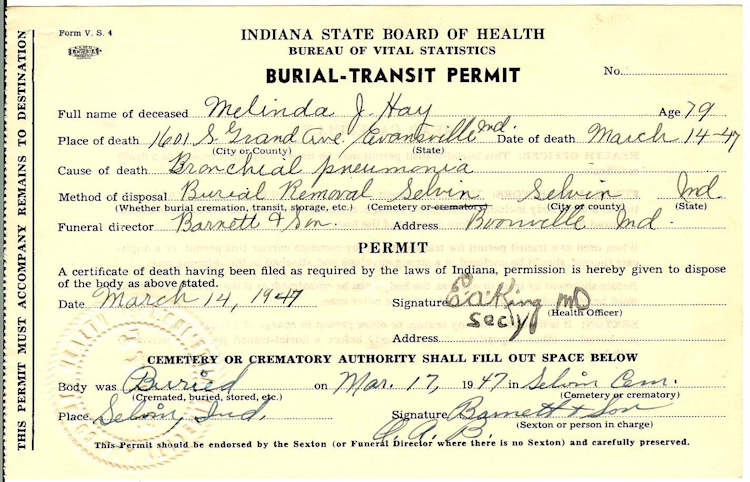 Form V. S. 4
INDIANA STATE BOARD OF HEALTH
BUREAU OF VITAL STATISTICS
BURIAL-TRANSIT PERMIT
No.
THIS PERMIT MUST ACCOMPANY REMAINS TO DESTINATION
Full name of deceased Melinda J. Hay Age 79
Place of death 1601 S. Grand Ave. Evansville Ind. Date of death March 14-47
(City or County) (State)
Cause of death Bronchial pneumonia
Method of disposal Burial Removal Selvin Selvin Ind
(Whether burial cremation, transit, storage, etc.) (Cemetery or crematory) (City or county) (State)
Funeral director Barnett & Son. Address Boonville Ind
PERMIT
A certificate of death having been filed as required by the laws of Indiana, permission is hereby given to dispose
of the body as above stated.
Date March 14, 1947 Signature King MD
(Health Officer)
secty
Address
CEMETERY OR CREMATORY AUTHORITY SHALL FILL OUT SPACE BELOW
Body was Buried on Mar. 17, 1947 in Selvin Cem.
(Cremated, buried, stored, etc.) (Cemetery or crematory)
Place Selvin, Ind. Signature Barnett & Son
(Sexton or person in charge)
This Permit should be endorsed by the Sexton (or Funeral Director where there is no Sexton) and carefully preserved.